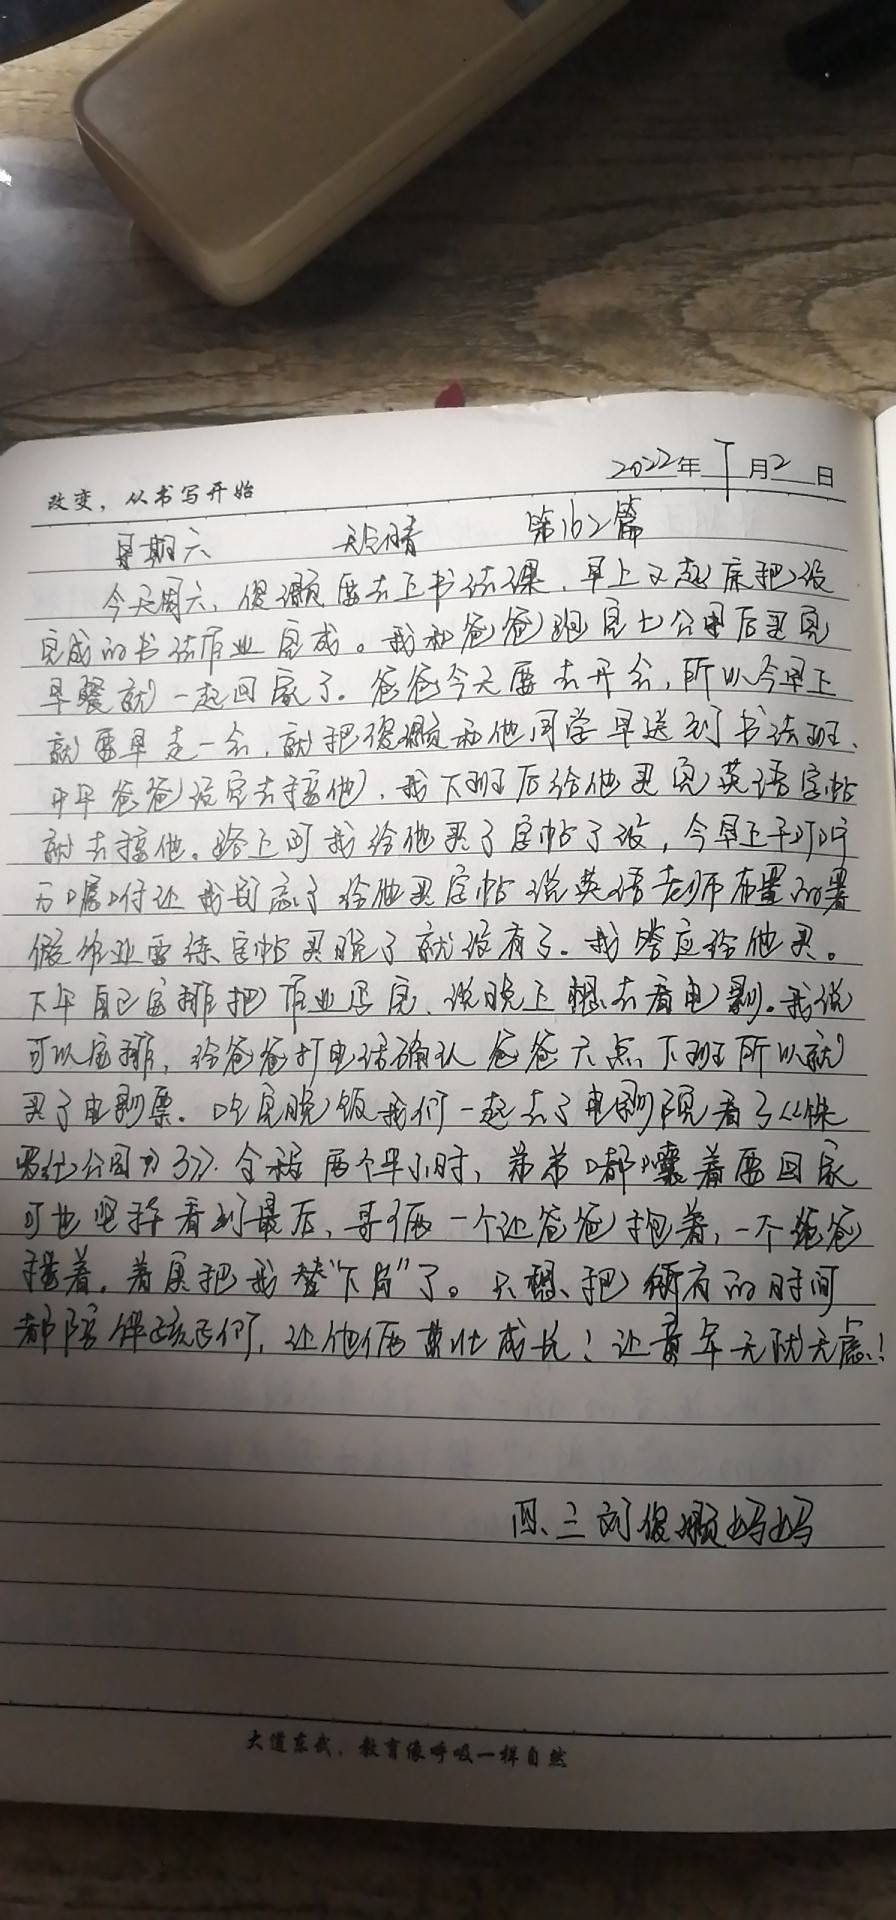 改变，从书写开始
2022年7月2日
星期六 天气晴 第162篇
今天周六，俊灏要去上书法课，早上又起床把没
完成的书法作业完成。我和爸爸跑完七公里后买完
早餐就一起回家了。爸爸今天要去开会，所以今早上
就要早走一会，就把俊灏和他同学早送到书法班、
中午爸爸说完去接他，我下班后给他买完英语字帖
就去接他。路上问我给他买了字帖了没，今早上千叮咛
万嘱咐让我别忘了给他买字帖说英语老师布置的暑
假作业要练字帖买晚了就没有了。我答应给他买。
下午自己安排把作业写完、说晚上想去看电影。我说
可以安排，给爸爸打电话确认爸爸六点下班所以就
买了电影票。吃完晚饭我们一起去了电影院看了《侏
罗纪公园3》。全程两个半小时，弟弟嘟囔着要回家
可也坚持看到最后，哥俩一个让爸爸抱着，一个爸爸
搂着。着实把我整“下岗”了。只想、把所有的时间
都陪伴孩子们，让他俩茁壮成长！让童年无忧无虑！
四、三刘俊灏妈妈
大道东武，教育像呼吸一样自然